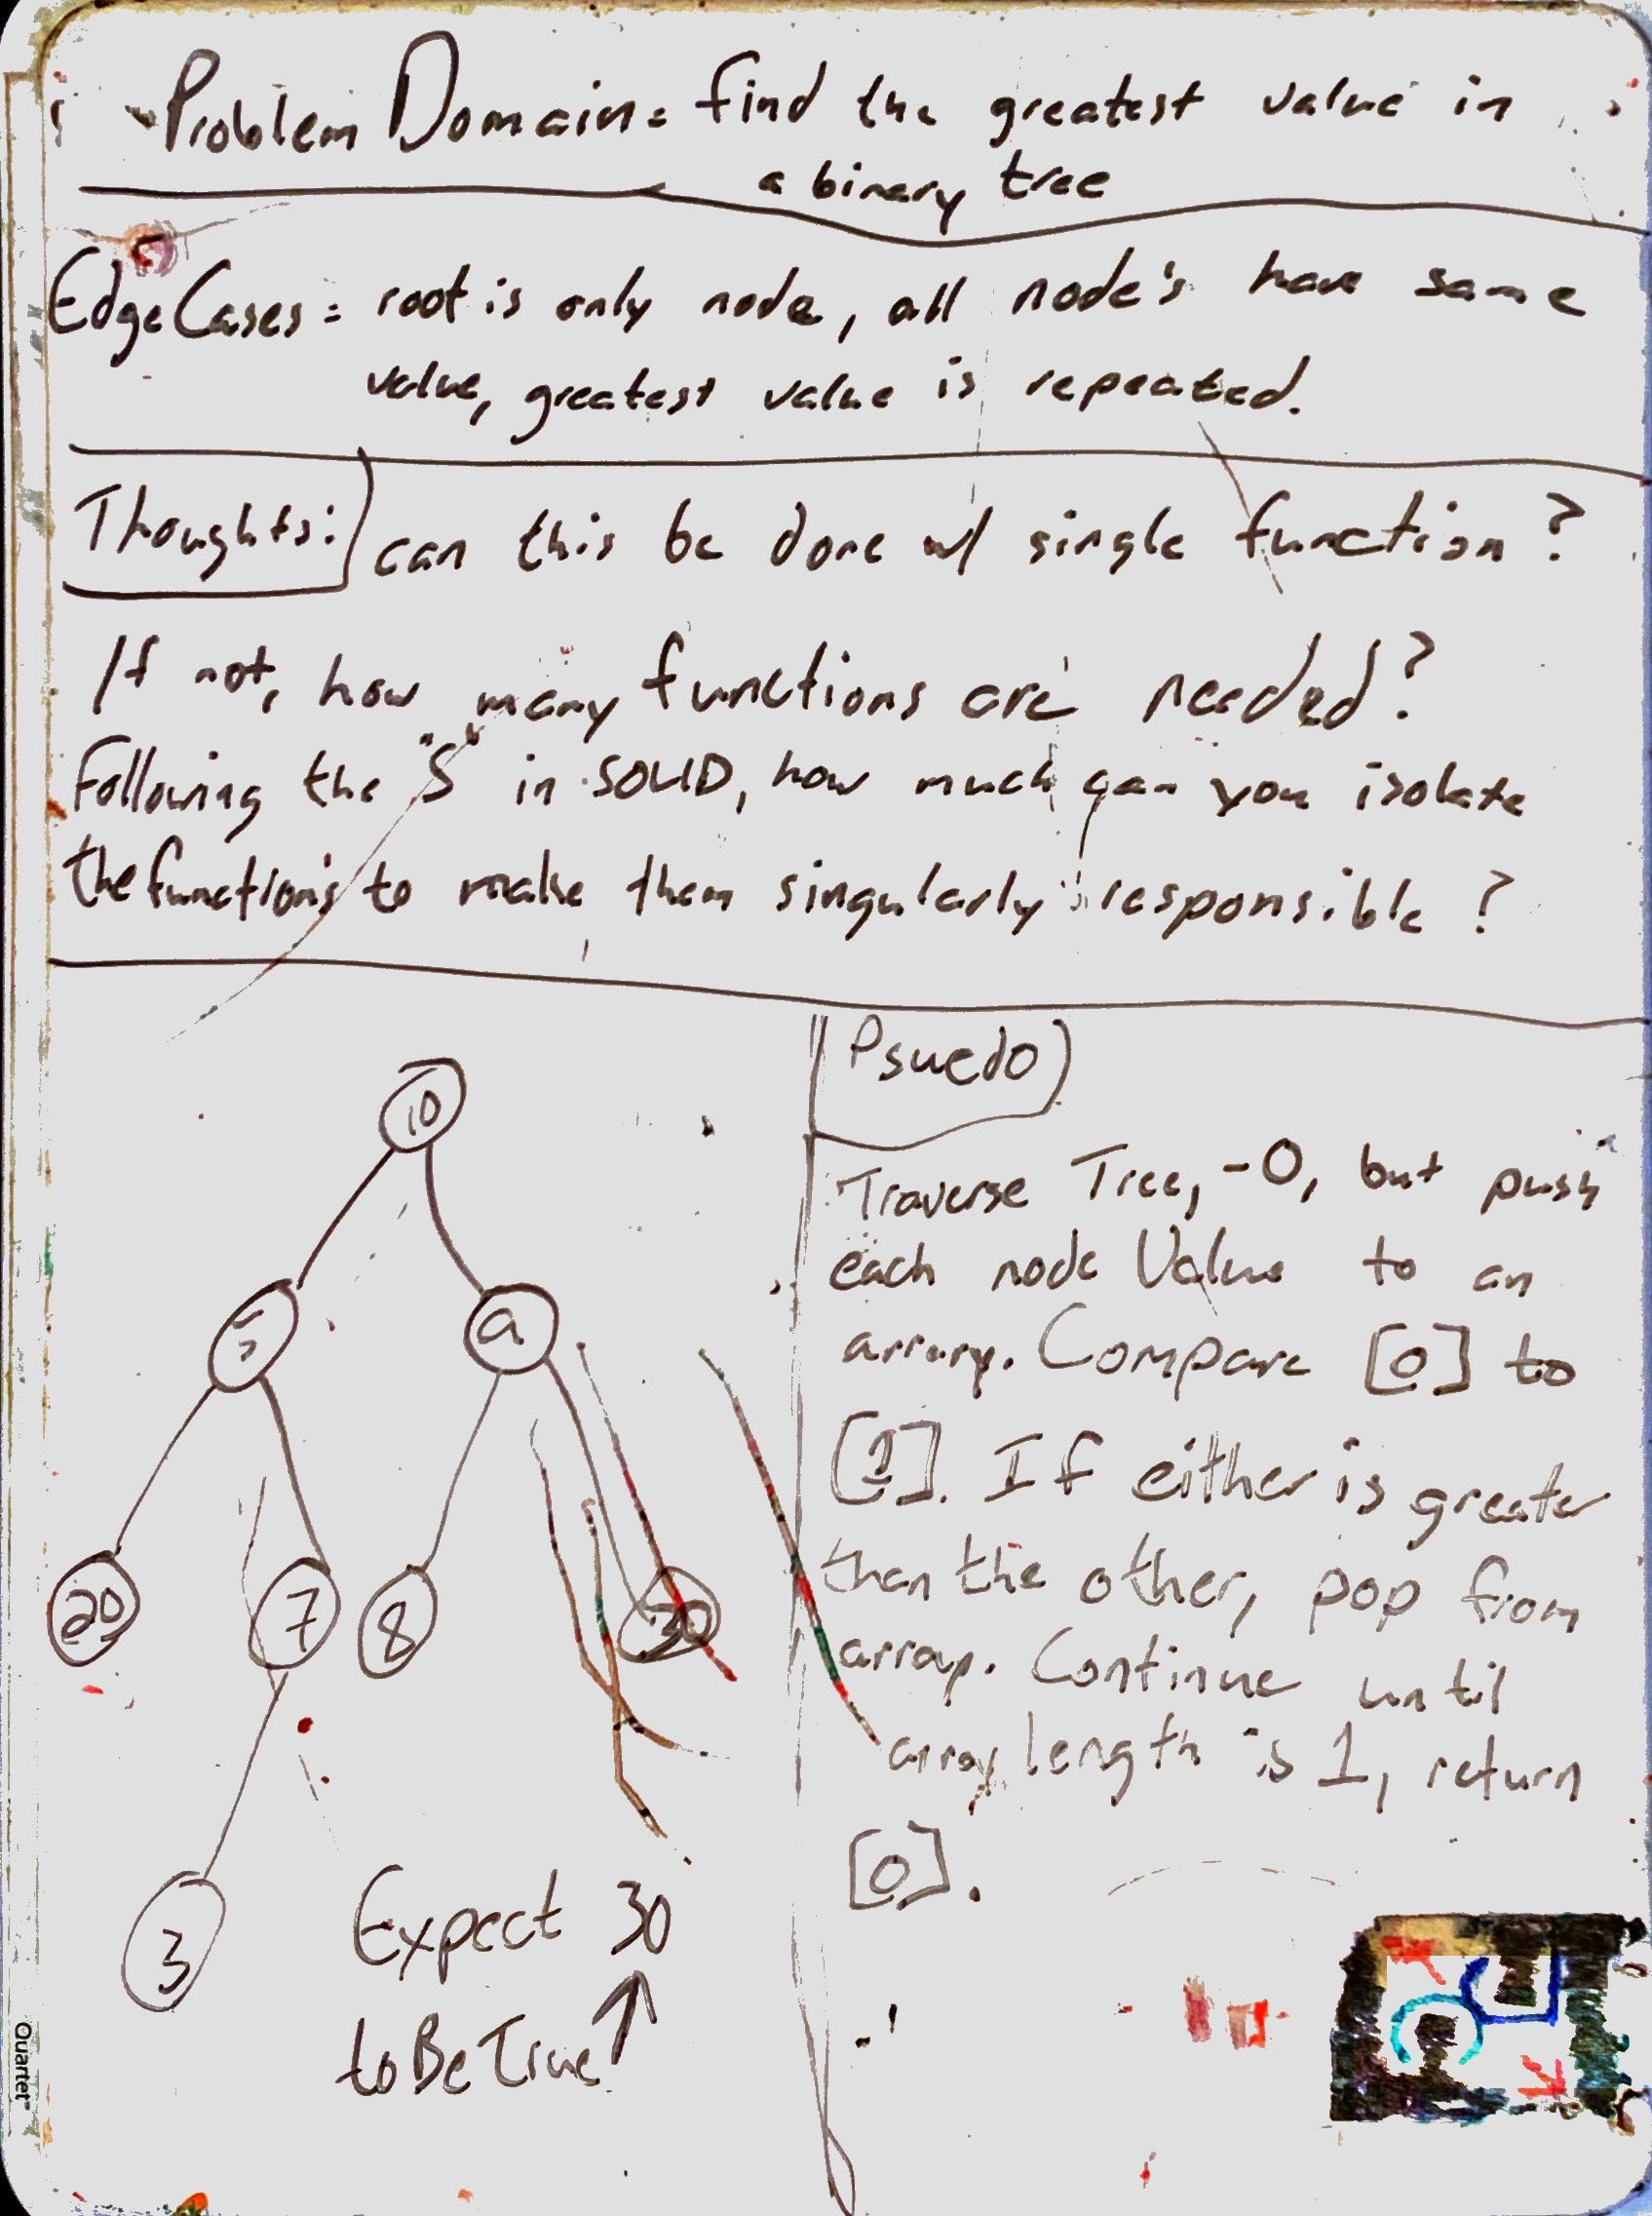 Problem Domain = find the greatest value in
a binary tree
Edge Cases = root is only node, all node's have same
value, greatest value is repeated.
Thoughts: can this be done w/ single function?
If not, how many functions are needed?
Following the "S" in SOLID, how much can you isolate
the functions to make them singularly responsible?
10
5 9
20 7 8 30
3
Expect 30
toBeTrue ↑
Psuedo
Traverse Tree, -O, but push
each node Value to an
array. Compare [0] to
[1]. If either is greater
than the other, pop from
array. Continue until
array length is 1, return
[0].
Quartet